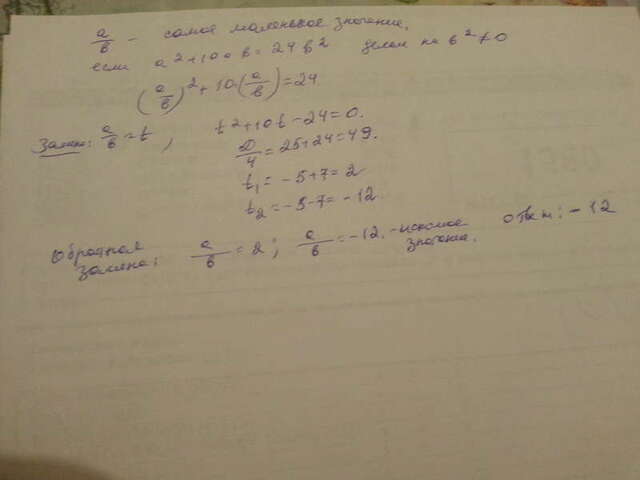 a/b - самое маленькое значение,
если a² + 10ab = 24b² делим на b² ≠ 0
(a/b)² + 10·(a/b) = 24
Замена: a/b = t, t² + 10t - 24 = 0.
D/4 = 25 + 24 = 49.
t₁ = -5 + 7 = 2
t₂ = -5 - 7 = -12.
Обратная замена: a/b = 2; a/b = -12. - искомое значение. ответ: -12